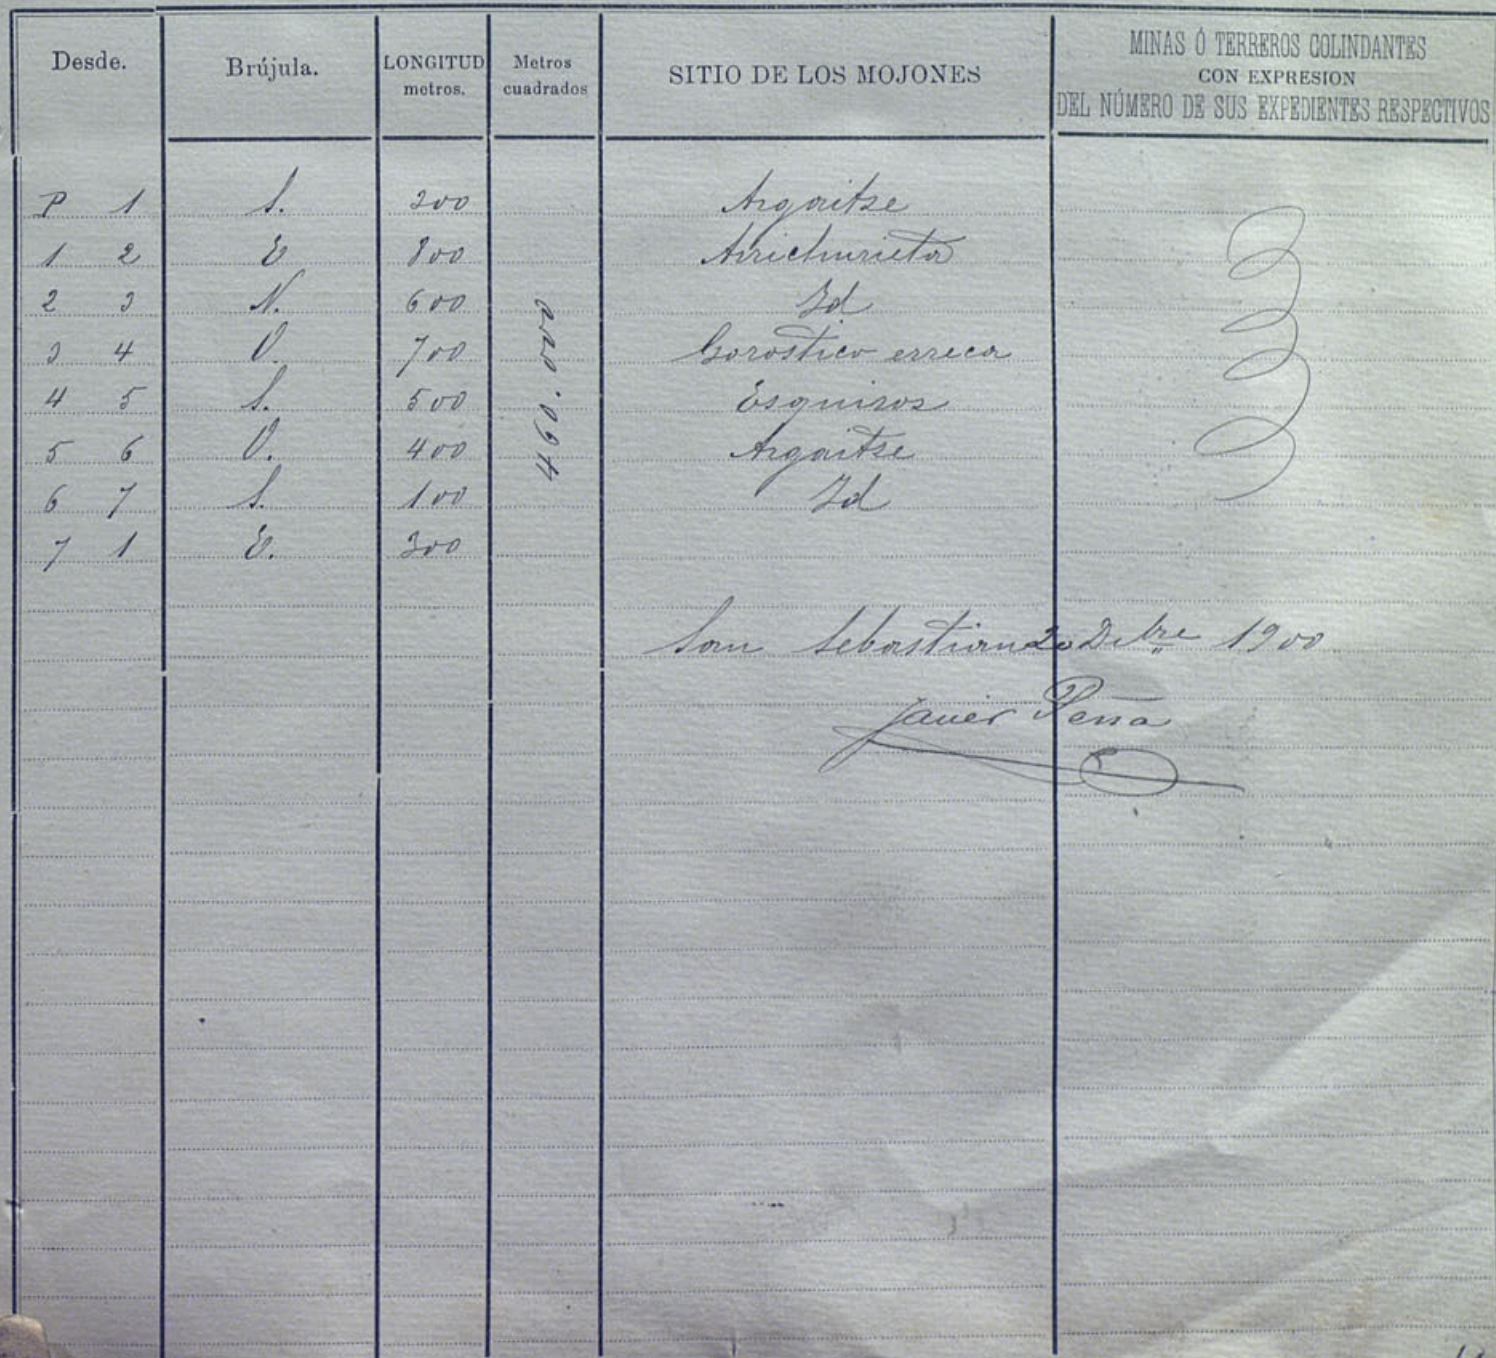 Desde. Brújula. LONGITUD metros. Metros cuadrados SITIO DE LOS MOJONES MINAS Ó TERREROS COLINDANTES CON EXPRESION DEL NÚMERO DE SUS EXPEDIENTES RESPECTIVOS
P 1 S. 300 Argaitse
1 2 E 800 Arrichurieta
2 3 N. 600 Id
3 4 O. 700 Gorostico erreca
4 5 S. 500 Esquiros
5 6 O. 400 Argaitse
6 7 S. 100 Id
7 1 E. 300
460.000
San Sebastian 20 Dbre 1900
Javier Peña